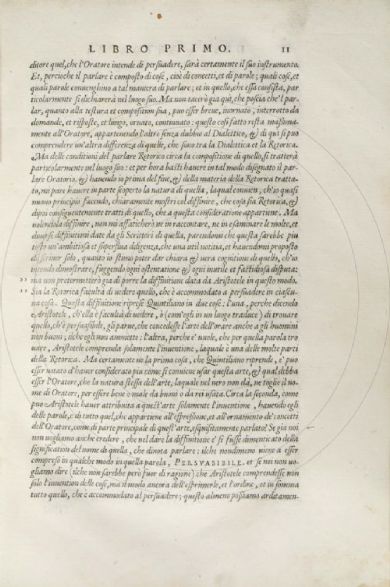 LIBRO PRIMO. 11
ditore quel, che l'Oratore intende di persuadere, sarà certamente il suo instrumento.
Et, percioche il parlare è composto di cose, cioè di concetti, et di parole; quali cose, et
quali parole convenghino a tal maniera di parlare; et in quello, che essa consista, par
ticolarmente si dichiarerà nel luogo suo. Ma non tacerò già quì, che posciache 'l par
lar, quanto alla testura et compositione sua, può esser breve, interrotto da
domande, et risposte, et lungo, ornato, continuato: questo così fatto resta
mente all'Oratore, appartenendo l'altro senza dubbio al Dialettico, & di quì si può
comprendere un'altra differenza di quelle, che sono tra la Dialettica et la Retorica.
Ma delle conditioni del parlare Retorico circa la compositione di quello, si tratterà
particolarmente nel luogo suo: et per hora basti havere in tal modo disegnato il par
lare Oratorio. & havendo in prima del fine, & della materia della Retorica tratta
to, mi pare havere in parte scoperto la natura di quella, laqual conviene, ch'io quasi
nuovo principio facendo, chiaramente mostri col diffinire, che cosa sia Retorica, &
dipoi conseguentemente tratti di quello, che a questa consideratione appartiene. Ma
volendola diffinire, non mi affaticherò ne in raccontare, ne in esaminare le molte, et
diverse diffinitioni date da gli Scrittori di quella, parendomi che questa sarebbe più
tosto un'ambitiosa et superflua diligenza, che una util notitia, et havendomi proposto
di seguir solo, quanto io stimo poter dar chiara & vera cognitione di quello, ch'io
intendo dimostrare, fuggendo ogni ostentatione & ogni inutile et fastidiosa disputa:
ma non pretermetterò già di porre la diffinitione data da Aristotele in questo modo.
Sia la Retorica facultà di vedere quello, che è accommodato a persuadere in ciascu
na cosa. Questa diffinitione riprese Quintiliano in due cose: l'una, perche dicendo
Aristotele, ch'ella è facultà di vedere, ò (com'egli in un luogo traduce) di trovare
quello, ch'è persuasibile, gli parve, che concedesse l'arte dell'orare anche a gli huomini
non buoni; ilche egli non ammette: l'altra, perche e' vuole, che per quella parola tro
vare, Aristotele comprenda solamente l'inventione, laquale è una delle molte parti
della Retorica. Ma certamente in la prima cosa, che Quintiliano riprende, e' può
esser notato d'haver considerato più come si convenga usar questa arte, & qual debba
esser l'Oratore, che la natura stessa dell'arte, laquale nel vero non dà, ne toglie il no
me di Oratore, per essere bene o male da buoni o da rei usata. Circa la seconda, come
può Aristotele havere attribuito a quest'arte solamente l'inventione, havendo egli
delle parole, & di tutto quel, che appartiene all'espressione, et all'ornamento de' concetti
dell'Oratore, come di parte principale di quest'arte, esquisitamente parlato? Se già noi
non vogliamo anche credere, che nel dare la diffinitione e' si fusse dimenticato della
significatione del nome di quella, che dinota parlare: ilche nondimeno viene a esser
compreso in qualche modo in quella parola, PERSUASIBILE. et se noi non vo
gliamo dire (ilche non sarebbe però fuor di ragione) che Aristotele comprendesse non
solo l'inventione delle cose, ma il modo ancora dell'esprimerle, et l'ordine, et in somma
tutto quello, che è accommodato al persuadere; questo almeno possiamo arditamen-